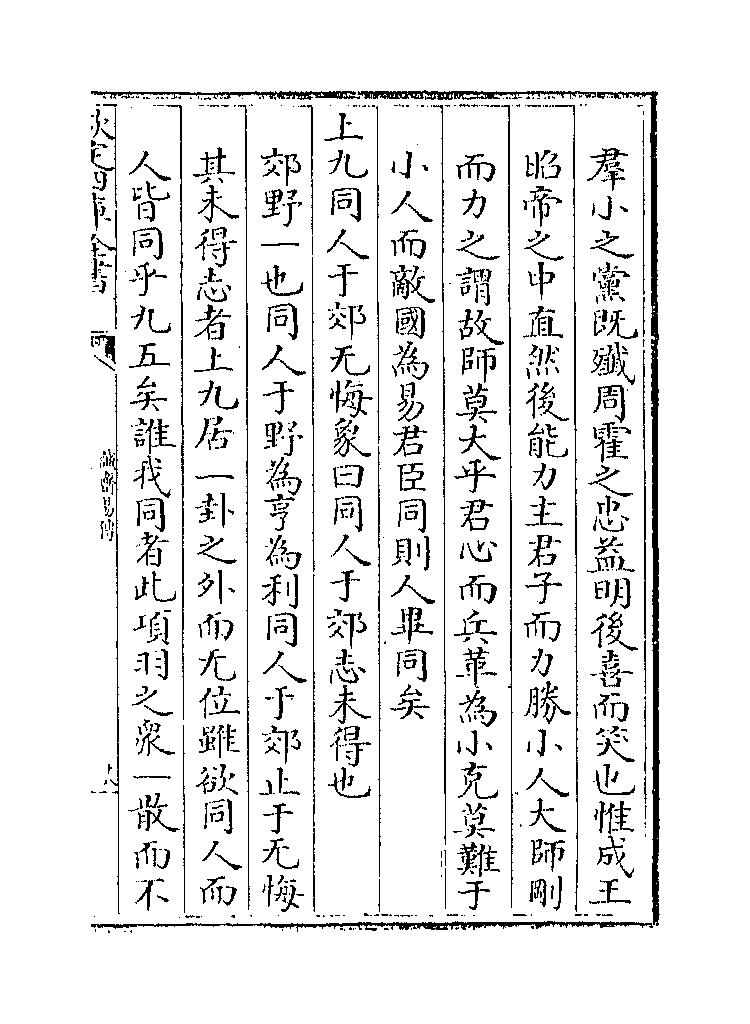 羣小之黨既殲周霍之忠益明後喜而笑也惟成王
昭帝之中直然後能力主君子而力勝小人大師剛
而力之謂故師莫大乎君心而兵革為小克莫難于
小人而敵國為易君臣同則人畢同矣
上九同人于郊无悔象曰同人于郊志未得也
郊野一也同人于野為亨為利同人于郊止于无悔
其未得志者上九居一卦之外而无位雖欲同人而
人皆同乎九五矣誰我同者此項羽之衆一散而不
欽定四庫全書
誠齋易傳
十八